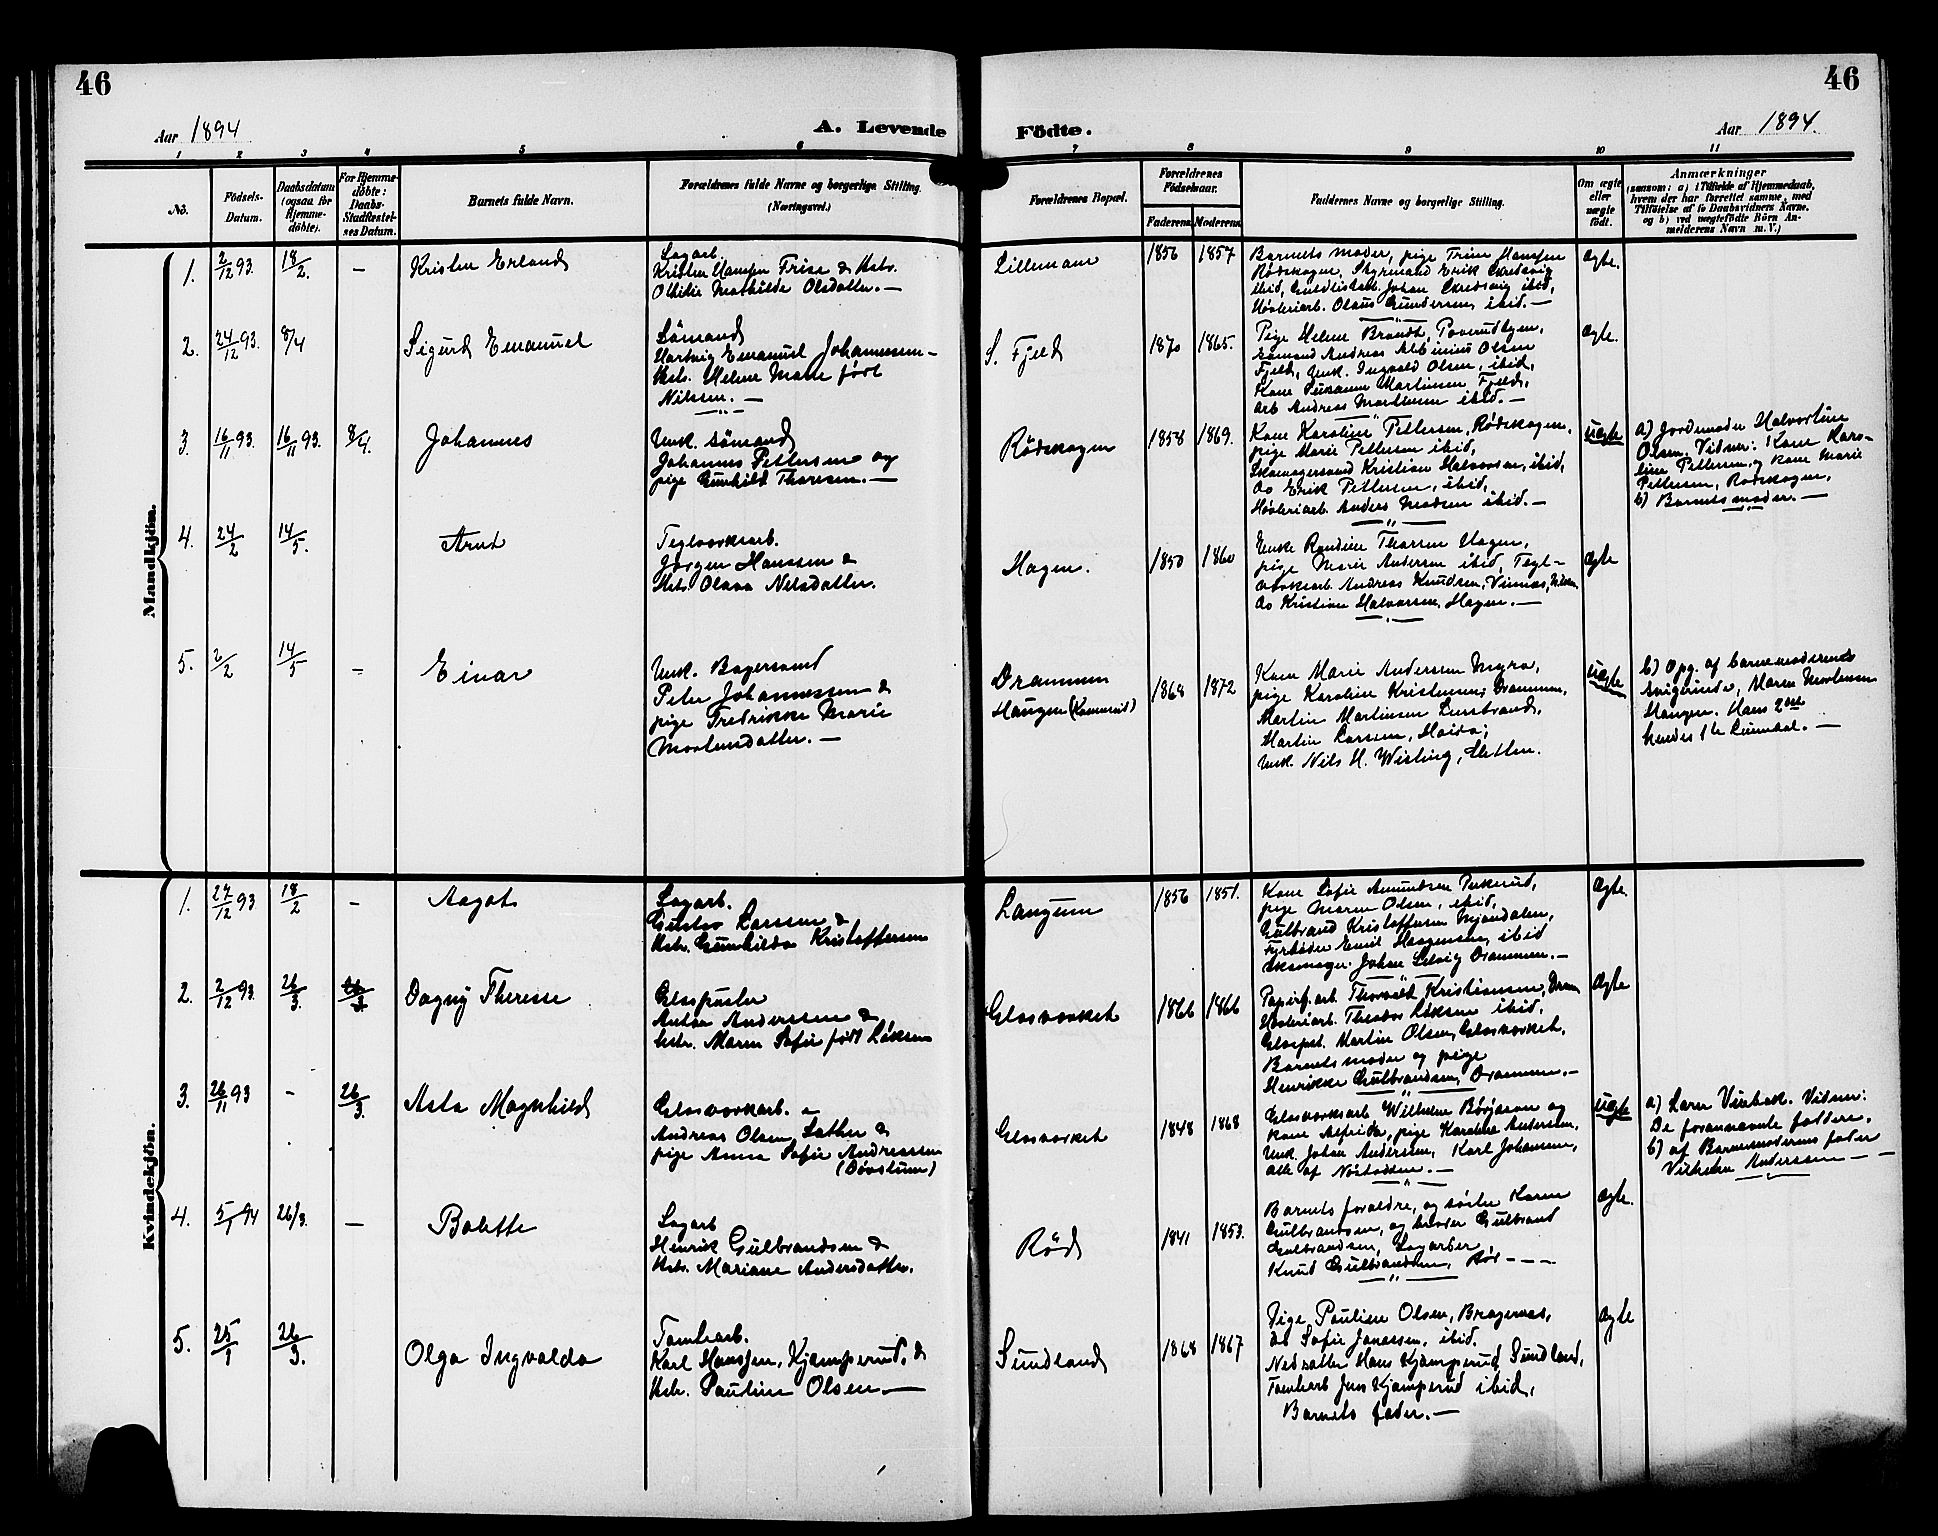 46
46
Aar 1894
A. Levende Födte.
Aar 1894.
1 2 3 4 5 6 7 8 9 10 11
No.
Födsels-Datum.
Daabsdatum (ogsaa for Hjemmedöbte).
For Hjemmedöbte: Daabs-Stadfæstelses Datum.
Barnets fulde Navn.
Forældrenes fulde Navne og borgerlige Stilling.
(Næringsvei.)
Forældrenes Bopæl.
Forældrenes Födselsaar.
Faderens
Moderens
Faddernes Navne og borgerlige Stilling.
Om ægte eller uægte födt.
Anmærkninger
(saasom: a) i Tilfælde af Hjemmedaab, hvem der har forrettet samme, med Tilföielse af to Daabsvidners Navne, og b) ved uægtefödte Börn Anmelderens Navn m. V.)
Mandkjön.
1. 2/12 93. 18/2. — Kristen Erland
Sagarb.
Kristen Hansen Frise & Hstr.
Othilie Mathilde Olsdatter. —
Lillemoen 1856 1857
Barnets moder, pige Trine Hansen
Rödskogen, Styrmand Erik
ibid, Johan ibid,
Høvleriarb. Olaus Gundersen, ibid. —
Ægte.
2. 24/12 93. 8/4 Sigurd Emanuel
Sömand
Hartvig Emanuel Johannessen —
Hstr. Helene Marie födt
Nilssen. —
S. Fjeld 1870 1865.
Pige Helene Brandt,
sömand Andreas Albinius Olsen
Fjeld, Unk. Ingvald Olsen, ibid,
Kone Martinsen Fjeld,
Arb Andreas Martinsen ibid. —
Ægte.
3. 16/11 93. 16/11 93. 8/4. Johannes
Unk. sömand
Johannes Pettersen og
pige Gunhild Thoresen. —
Rödskogen 1858 1869.
Kone Karoline Pettersen, Rödskogen,
pige Marie Pettersen ibid,
Skomagersvend Kristian Halvorsen, ibid,
Do Erik Pettersen, ibid,
Høvleriarb. Anders Madsen ibid. —
uægte
a) Jordmoder Halvorline
Olsen. Vidner: Kone Karo-
line Pettersen, og kone Marie
Pettersen, Rödskogen,
b) Barnets moder. —
4. 24/2 14/5. Arnt
Teglværksarb.
Jørgen Hanssen &
Hstr. Olava Nilsdatter.
Hagen. 1850 1860
Enke Randine Thorsen Hagen,
pige Marie Andersen ibid, Tegl-
værksarb Andreas Knudsen,
Do Kristian Halvorsen, Hagen. —
Ægte
5. 2/2 14/5 — Einar
Unk. Bagersvend
Peter Johannessen &
pige Fredrikke Marie
Mortensdatter. —
Drammen
Haugen 1868 1872
Kone Marie Andersen Myra,
pige Karoline Kristensen, Drammen,
Martin Martinsen
Martin Larsen,
Unk. Nils H. Wisting,
uægte
b) Opg. af barnemoderens
svigerinde, Maren Mortensen
Haugen. Hans 2det
hendes 1te Leiermaal. —
Kvindekjön.
1. 27/12 93 18/2 — Aagot
Sagarb.
Gustav Larssen &
Hstr. Gunhilda Kristoffersen
Langum 1856 1851.
Kone Sofie Amundsen
pige Maren Olsen, ibid,
Gulbrand Kristoffersen Mjøndalen,
Fyrböder Emil Haagensen, ibid
Skomager Johan Drammen. —
Ægte.
2. 2/12 93. 26/3. 26/3 Dagny Therese
Glaspuster
Anton Anderssen &
Hstr. Maren Sofie födt
Glasværket 1866 1866
Papirf.arb. Thorvald Kristiansen, Dram
Høvleriarb. Theodor ibid.
Glaspst. Martin Olsen, Glasværket.
Barnets moder og pige
Henrikke Gulbrandsen, Drammen. —
Ægte
3. 26/11 93 - 26/3. Asta Magnhild
Glasværksarb. —
Andreas Olsen Sather &
pige Anna Sofie Andreassen
(Døvstum)
Glasværket 1848 1868
Glasværksarb Wilhelm Børjeson og
kone Alfrida, pige Karoline Andersen,
Unk. Johan Andersen, Karl Johansen,
alle af —
uægte
a) Vidner:
De forannævnte faddere,
b) af Barnemoderens fader
Vilhelm Anderssen — —
4. 5/1 94 26/3. — Bolette
Sagarb
Henrik Gulbrandsen &
Hstr. Mariane Andersdatter.
Röd 1841 1853.
Barnets forældre, og söster Karen
Gulbrandsen, og broder Gulbrand
Gulbrandsen, Sagarber
Knud Gulbrandsen, Röd - - -
Ægte.
5. 25/1 26/3. Olga Ingvalda
Tomtearb.
Karl Hanssen, Kjæmperud, &
Hstr. Pauline Olsen —
Sundland 1868 1867
Pige Pauline Olsen, Bragernæs,
do Sofie Janassen, ibid.
Hans Kjæmperud Sundland,
Tomtearb Jens Kjæmperud ibid,
Barnets fader. —
Ægte